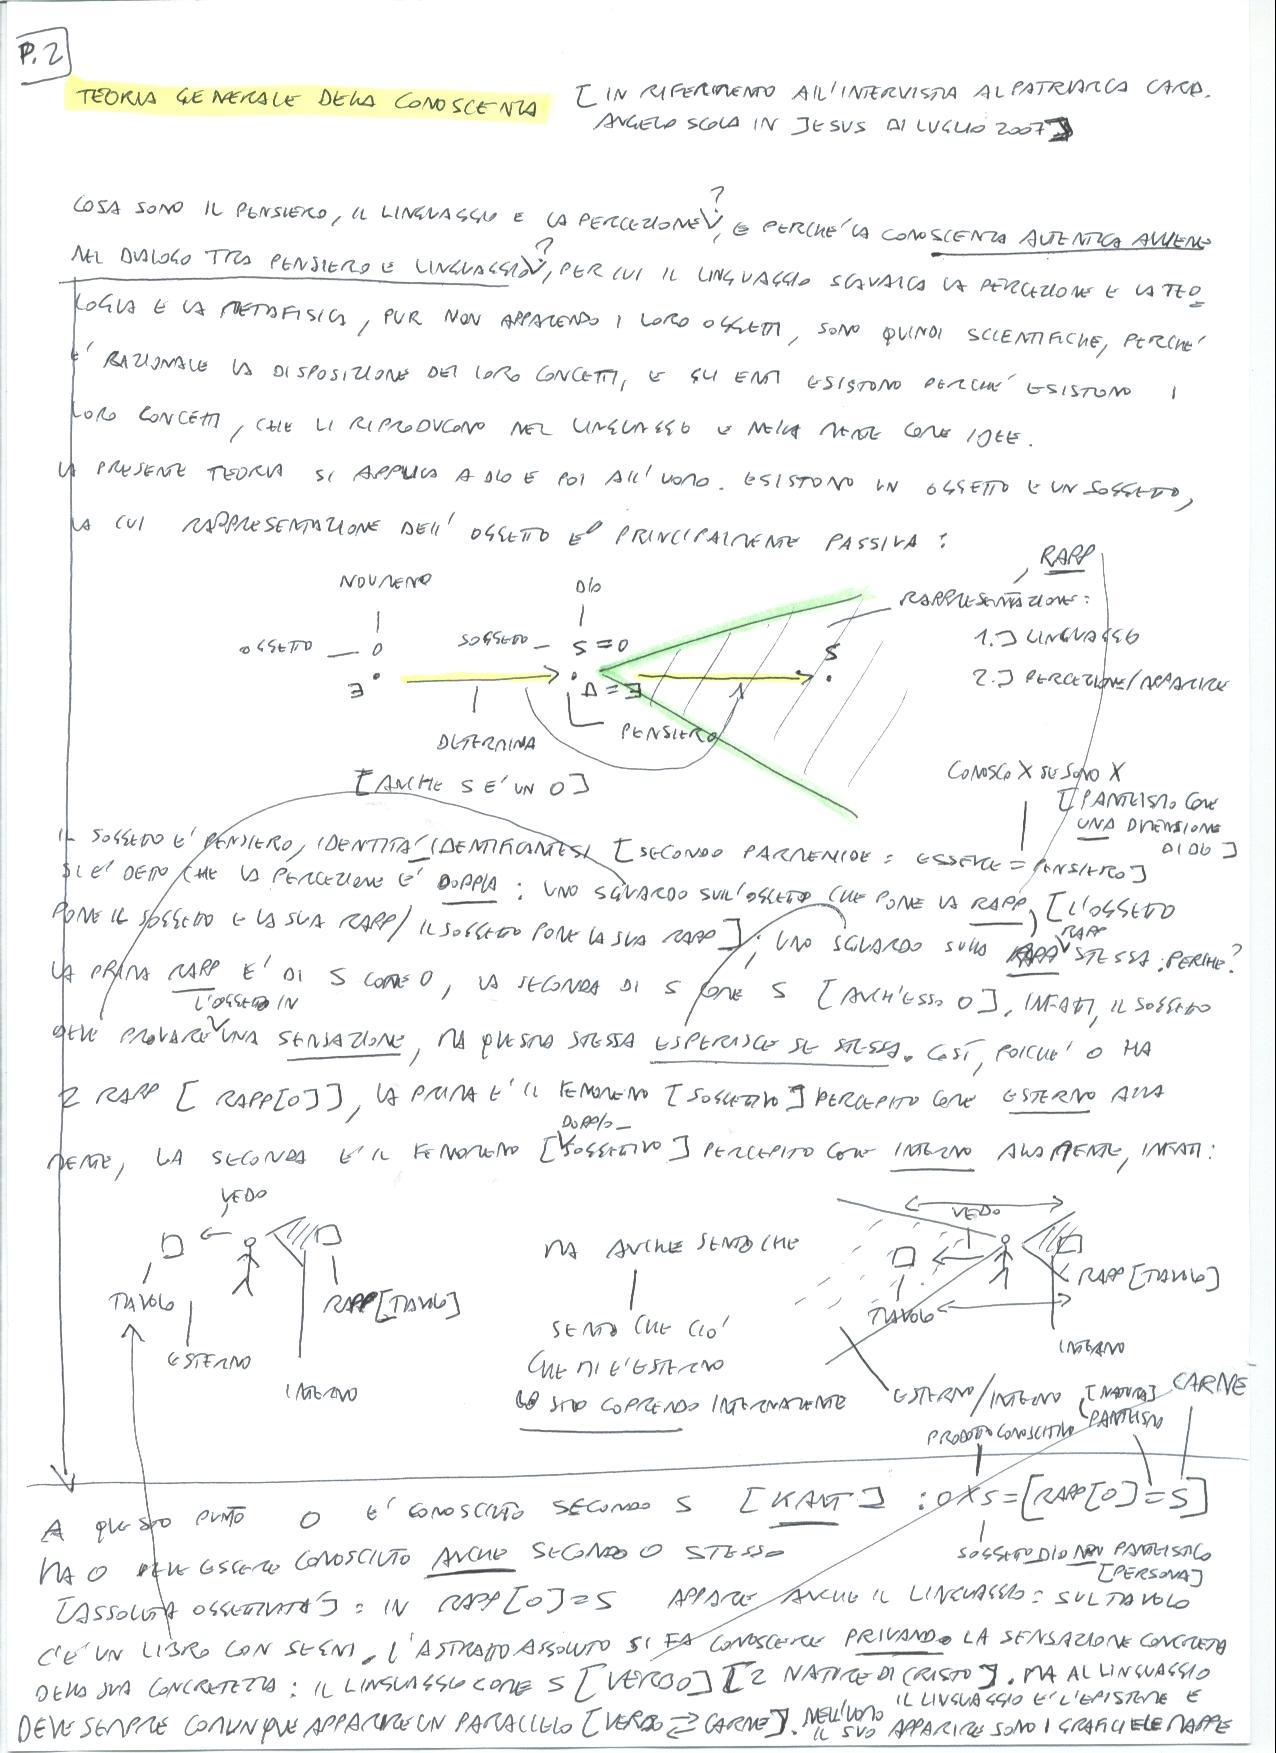 P.2
TEORIA GENERALE DELLA CONOSCENZA [IN RIFERIMENTO ALL'INTERVISTA AL PATRIARCA CARD.
ANGELO SCOLA IN JESUS DI LUGLIO 2007]
COSA SONO IL PENSIERO, IL LINGUAGGIO E LA PERCEZIONE?, E PERCHE' LA CONOSCENZA AUTENTICA AVVIENE
NEL DIALOGO TRA PENSIERO E LINGUAGGIO?, PER CUI IL LINGUAGGIO SCAVALCA LA PERCEZIONE E LA TEO
LOGIA E LA METAFISICA, PUR NON APPARENDO I LORO OGGETTI, SONO QUINDI SCIENTIFICHE, PERCHE'
E' RAZIONALE LA DISPOSIZIONE DEI LORO CONCETTI, E GLI ENTI ESISTONO PERCHE' ESISTONO I
LORO CONCETTI, CHE LI RIPRODUCONO NEL LINGUAGGIO E NELLA MENTE COME IDEE.
LA PRESENTE TEORIA SI APPLICA A DIO E POI ALL'UOMO. ESISTONO UN OGGETTO E UN SOGGETTO,
LA CUI RAPPRESENTAZIONE DELL'OGGETTO E' PRINCIPALMENTE PASSIVA:
NOUMENO
DIO
, RAPP
RAPPRESENTAZIONE:
OGGETTO — O
SOGGETTO — S=O
S
1.] LINGUAGGIO
2.] PERCEZIONE/APPARIRE
∃
Δ=∃
1
DETERMINA
PENSIERO
[ANCHE S E' UN O]
CONOSCO X SE SONO X
[PANTEISMO COME
UNA DIMENSIONE
DI DIO]
IL SOGGETTO E' PENSIERO, IDENTITA' IDENTIFICANTESI [SECONDO PARMENIDE: ESSERE=PENSIERO]
SI E' DETTO CHE LA PERCEZIONE E' DOPPIA: UNO SGUARDO SULL'OGGETTO CHE PONE LA RAPP, [L'OGGETTO
PONE IL SOGGETTO E LA SUA RAPP/IL SOGGETTO PONE LA SUA RAPP]; UNO SGUARDO SULLA RAPP STESSA. PERCHE'?
LA PRIMA RAPP E' DI S COME O, LA SECONDA DI S COME S [ANCH'ESSO O]. INFATTI, IL SOGGETTO
DEVE PROVARE L'OGGETTO IN UNA SENSAZIONE, MA QUESTA STESSA ESPERISCE SE STESSA. COSI', POICHE' O HA
2 RAPP [RAPP[O]], LA PRIMA E' IL FENOMENO [SOGGETTIVO] PERCEPITO COME ESTERNO ALLA
MENTE, LA SECONDA E' IL FENOMENO [DOPPIO-SOGGETTIVO] PERCEPITO COME INTERNO ALLA MENTE, INFATTI:
VEDO
TAVOLO
RAPP[TAVOLO]
ESTERNO
INTERNO
MA ANCHE SENTO CHE
SENTO CHE CIO'
CHE MI E' ESTERNO
LO STO COPRENDO INTERNAMENTE
VEDO
RAPP[TAVOLO]
TAVOLO
INTERNO
ESTERNO/INTERNO
[NATURA]
PANTEISMO
CARNE
PRODOTTO CONOSCITIVO
A QUESTO PUNTO O E' CONOSCIUTO SECONDO S [KANT]: O×S=[RAPP[O]=S]
MA O DEVE ESSERE CONOSCIUTO ANCHE SECONDO O STESSO
SOGGETTO DIO NON PANTEISTICO
[PERSONA]
[ASSOLUTA OGGETTIVITA']: IN RAPP[O]=S APPARE ANCHE IL LINGUAGGIO: SUL TAVOLO
C'E' UN LIBRO CON SEGNI. L'ASTRATTO ASSOLUTO SI FA CONOSCERE PRIVANDO LA SENSAZIONE CONCRETA
DELLA SUA CONCRETEZZA: IL LINGUAGGIO COME S [VERBO] [2 NATURE DI CRISTO]. MA AL LINGUAGGIO
DEVE SEMPRE COMUNQUE APPARIRE UN PARALLELO [VERBO ⇄ CARNE]. NELL'UOMO IL LINGUAGGIO E' L'EPISTEME E
IL SUO APPARIRE SONO I GRAFICI E LE MAPPE